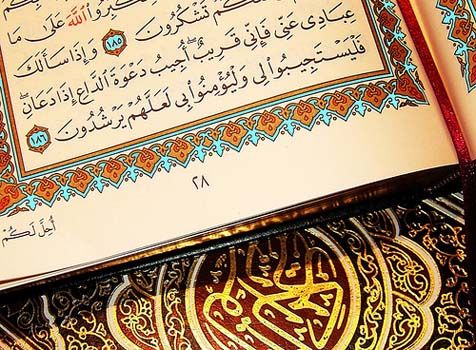 اللَّهَ عَلَىٰ مَا
تَشْكُرُونَ ١٨٥ وَإِذَا سَأَلَكَ
عِبَادِى عَنِّى فَإِنِّى قَرِيبٌ أُجِيبُ دَعْوَةَ الدَّاعِ إِذَا دَعَانِ
فَلْيَسْتَجِيبُوا لِى وَلْيُؤْمِنُوا بِى لَعَلَّهُمْ يَرْشُدُونَ ١٨٦
٢٨
أُحِلَّ لَكُمْ